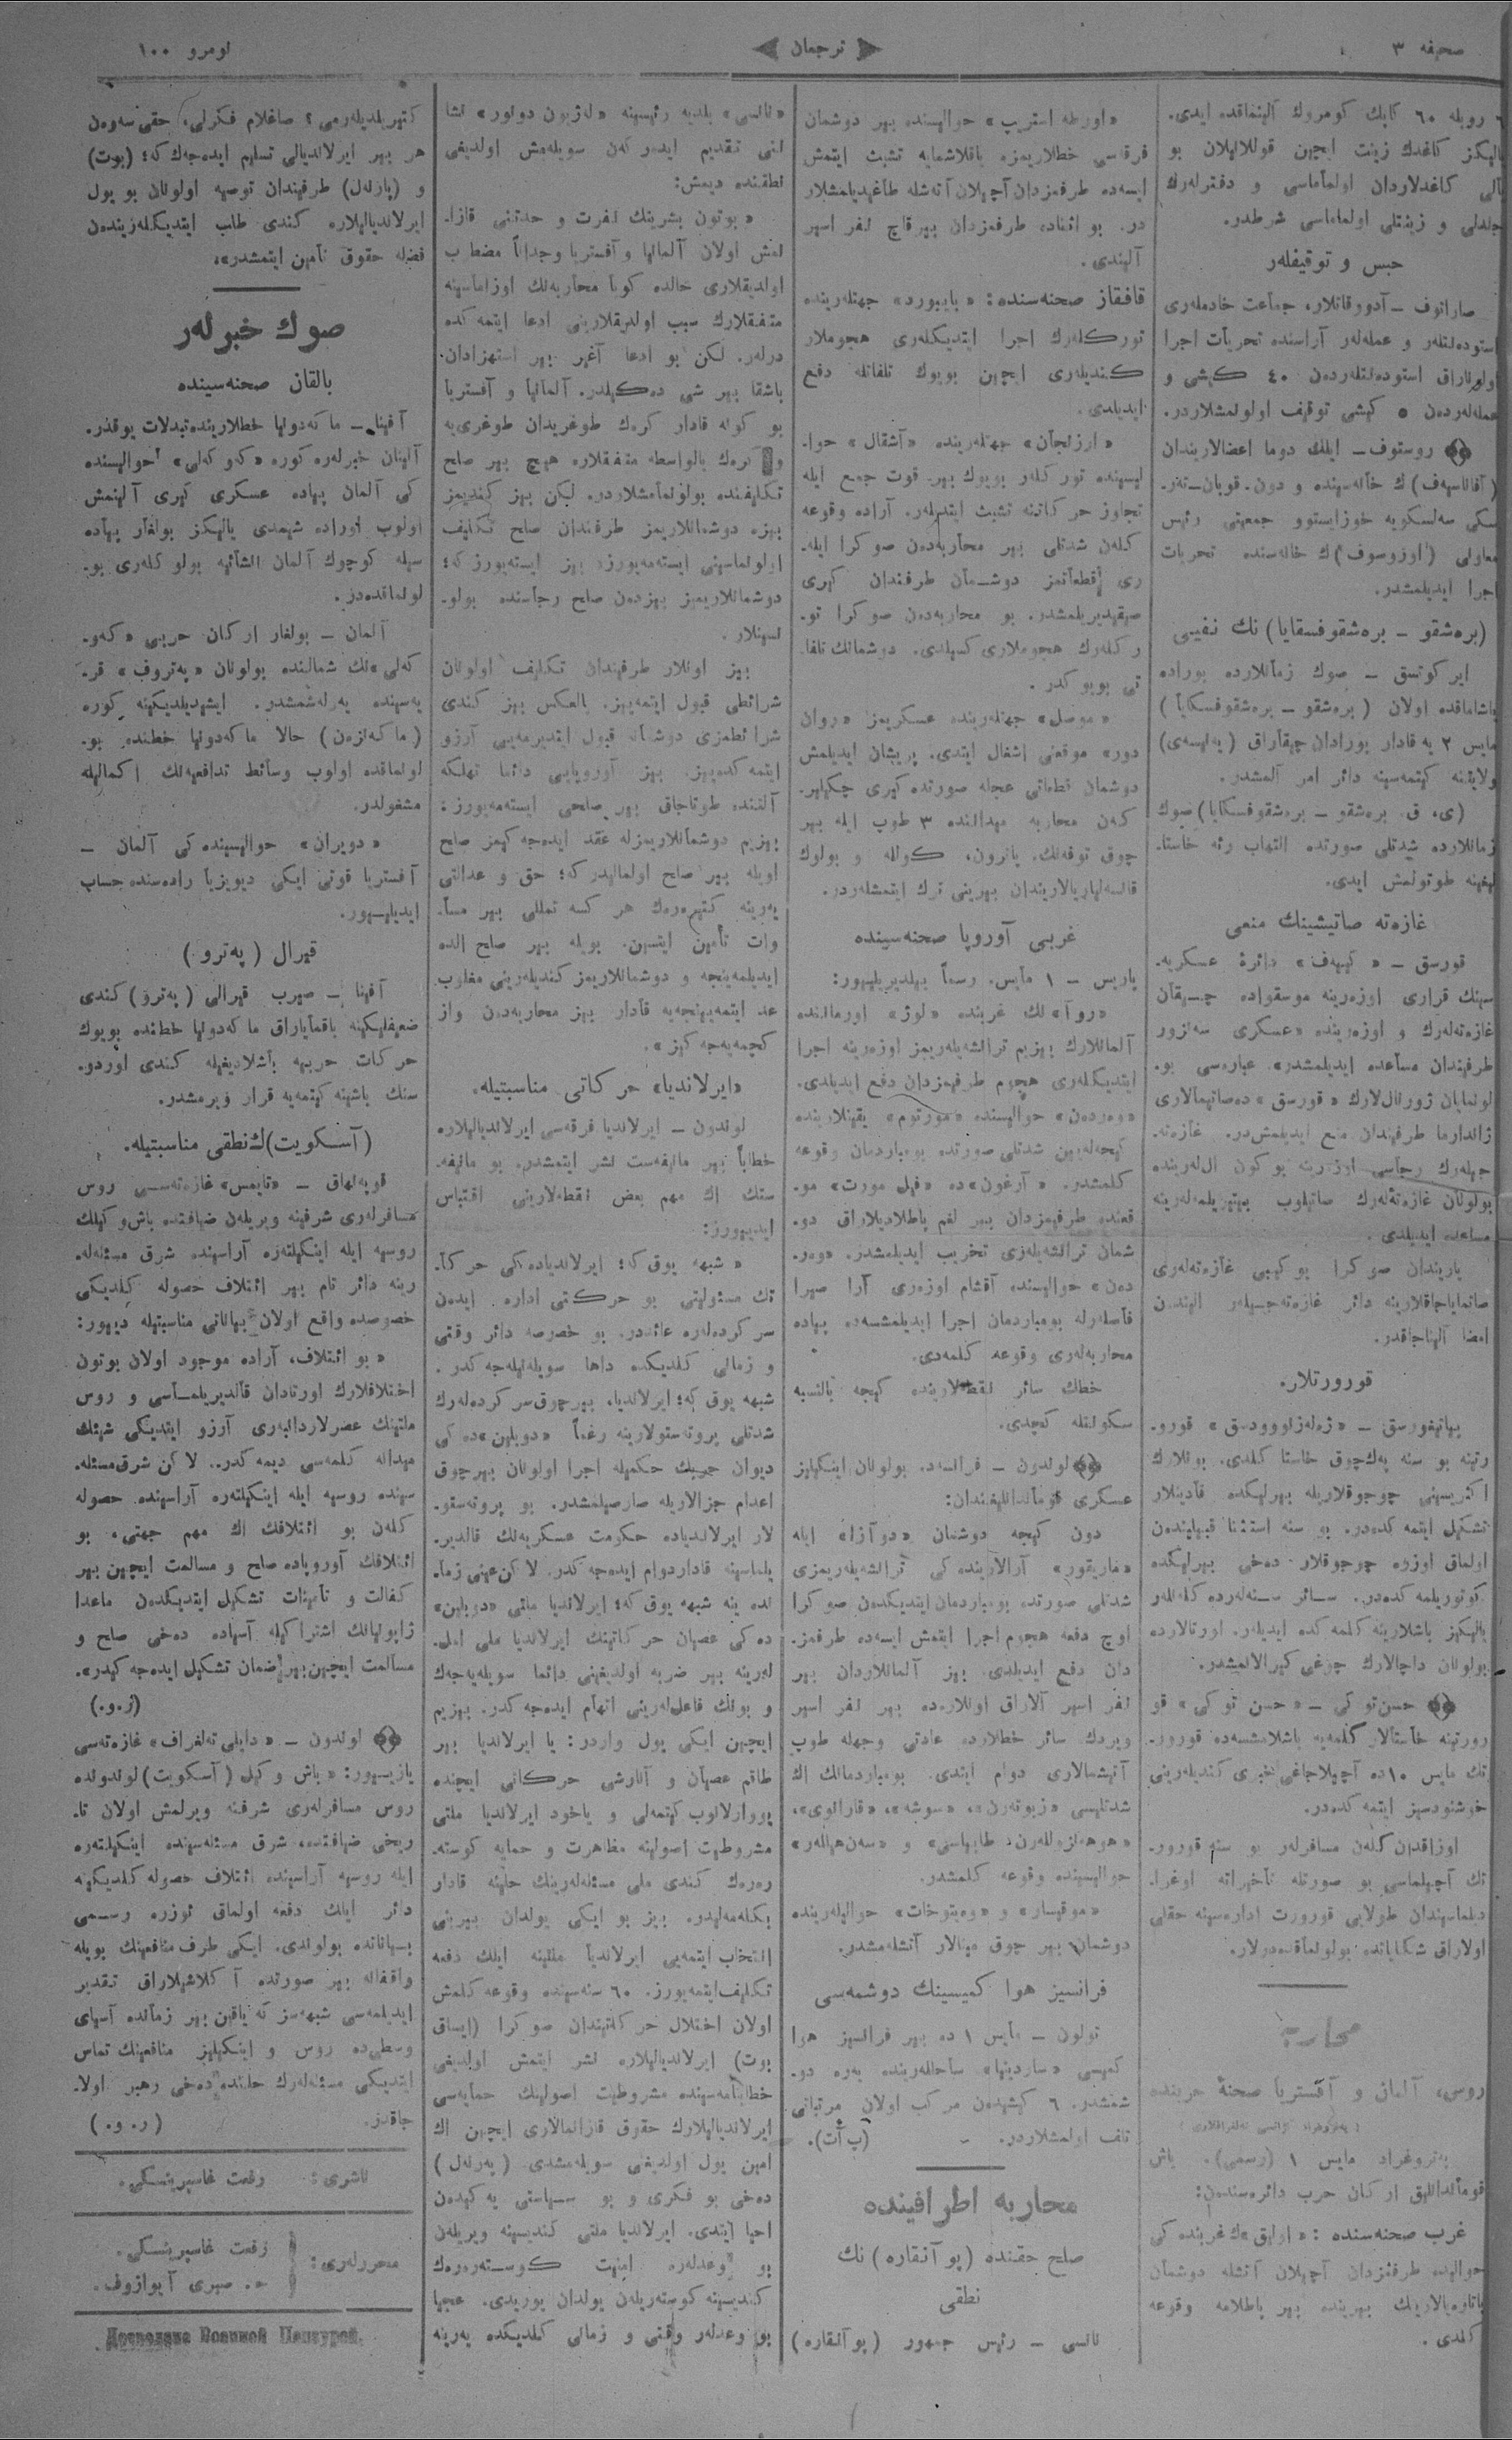 صحیفه ۳
ترجمان
نومرو ۱۰۰
روبله ٦٠ کاپك کومروك آلینماقده ایدی.
یالیکز کاغدك زینت ایچین قوللانیلان بو
کاغدلاردان اولماماسی و دفترلەرك
جلدلی و زینتلی اولماماسی شرطدر.
حبس و توقیفلەر
صاراتوف – آدووقاتلار، جماعت خادملەری
استودەنتلەر و عملەلەر آراسنده تحریات اجرا
اولوناراق استودەنتلەردەن ٤٠ کیشی و
عملەلەردەن ٥ کیشی توقیف اولونمشلاردر.
روستوف – ایلك دوما اعضالاریندان
معاونی (اوزوسوف)ك خانەسنده تحریات
اجرا ایدیلمشدر.
(برەشقو – برەشقوفسقایا) نك نفیی
ایرکوتسق – صوك زمانلارده بوراده
یاشاماقده اولان (برەشقو – برەشقوفسکایا)
مایس ٢ یه قادار بورادان چیقاراق
ولایتنه کیتمەسینه دائر امر آلمشدر.
(ی، ق. برەشقو – برەشقوفسکایا) صوك
زمانلارده شدتلی صورتده التهاب رئه خاستا-
لیغینه طوتولمش ایدی.
غازەته صاتیشینك منعی
قورسق – «کییەف» دائرهٔ عسکریه-
سینك قراری اوزەرینه موسقواده چـیقان
غازەتەلەرك و اوزەرینده «عسکری سەنزور
طرفیندان مساعده ایدیلمشدر» عبارەسی بو-
لونمایان ژورنال‌لارك «قورسق» ده‌صاتیمالاری
ژاندارما طرفیندان منع ایدیلمش‌در. غازەتە-
جیلەرك رجاسی اوزرینه بوکون ال‌لەرینده
بولونان غازەتەلەرك صاتیلوب بیتیریلمەلەرینه
مساعده ایدیلدی.
یاریندان صوکرا بو کیبی غازەتەلەری
صاتمایاجاقلارینه دائر غازەتەجـیلەر الیندن
امضا آلیناجاقدر.
قورورتلار.
پیاتیغورسق – «ژەلەزنوووودسق» قورو-
رتینه بو سنه پەك‌چوق خاستا کلدی. بونلارك
اکثریسینی چوجوقلاریله بیرلیکده قادینلار
تشکیل ایتمەکدەدر.
اولماق اوزره چوجوقلار دەخی بیرلیکده
کوتوریلمەکدەدر. سـائر سـنەلەرده کلەنلەر
یالیکز باشلارینه کلمەکده ایدیلەر. اورتالارده
بولونان داچالارك چوغی کیرالانمشدر.
حسن توکی – «حسن توکی» قو
رورتینه خاستالار کلمەیه باشلامشسەده قورور-
تك مایس ١٠ده آچیلاجاغی خبری کندیلەرینی
خوشنودسیز ایتمەکدەدر.
اوزاقدان کلەن مسافرلەر بو سنه قورور-
تك آچیلماسی بو صورتله تأخیراته اوغرا-
دیلماسیندان طولایی قورورت ادارەسینه حقلی
اولاراق شکایاتده بولونماقدەدرلار.
محاربه
روس، آلمان و آفستریا صحنهٔ حربنده
پەتروغراد مایس ١ (رسمی). باش
قوماندانلیق ارکان حرب دائرەسندەن:
غرب صحنەسنده:
حوالیده طرفمزدان آچیلان آتشله دوشمان
باتارەیالارینك بیرینده بیر پاطلامه وقوعه
کلدی.
«اورطه استریپ» حوالیسنده بیر دوشمان
فرقاسی خطلاریمزه یاقلاشمایه تشبث ایتمش
ایسەده طرفمزدان آچیلان آتشله طاغیدیلمشلار
در. بو اثناده طرفمزدان بیرقاچ نفر اسیر
آلیندی.
قافقاز صحنەسنده: «بایبورد» جهتلەرینده
تورکلەرك اجرا ایتدیکلەری هجوملار
کندیلەری ایچین بویوك تلفاتله دفع
ایدیلدی.
«ارزنجان» جهتلەرینده «آشقال» حوا-
لیسینده تورکلەر بویوك بیر قوت جمع ایله
تجاوز حرکاتینه تشبث ایتدیلەر. آراده وقوعه
کلەن شدتلی بیر محاربەدەن صوکرا ایله-
ری قطعاتمز دوشـمان طرفندان کیری
صیقیدیریلمشدر. بو محاربەدەن صوکرا تو-
رکلەرك هجوملاری کسیلدی. دوشمانك تلفا-
تی بویوکدر.
«موصل» جهتلەرینده عسکریمز «روان
دوز» موقعنی اشغال ایتدی. پریشان ایدیلمش
دوشمان قطعاتی عجله صورتده کیری چکیلیر-
کەن محاربه میداننده ٣ طوپ ایله بیر
چوق توفەنك، پاترون، کولله و بولوك
ترك ایتمشلەردر.
غربی آوروپا صحنەسینده
پاریس – ١ مایس. رسماً بیلدیریلییور:
«روآ»نك غربنده «لوژ» اورماننده
آلمانلارك بیزیم ترانشەیلەریمز اوزەرینه اجرا
ایتدیکلەری هجوم طرفیمزدان دفع ایدیلدی.
«وەردەن» حوالیسنده «مورتوم» یقینلارینده
کیجەلەیین شدتلی صورتده بومباردمان وقوعه
کلمشدر. «آرغون»ده «فیل مورت» مو-
قعنده طرفیمزدان بیر لغم پاطلادیلاراق دو-
شمان ترانشەیلەری تخریب ایدیلمشدر. «وەر-
دەن» حوالیسنده آقشام اوزەری آرا صیرا
فاصلەلرله بومباردمان اجرا ایدیلمشسەده پیاده
محاربەلەری وقوعه کلمەدی.
خطك سائر نقطەلارینده کیجه بالنسبه
سکونتله کچدی.
لوندون – فرانسەده بولونان اینکیلیز
عسکری قوماندانلیغندان:
دون کیجه دوشمان «دو آزا» ایله
«ماریقور» آرالاریندەکی ترانشەیلەریمزی
شدتلی صورتده بومباردمان ایتدیکدەن صوکرا
اوچ دفعه هجوم اجرا ایتمش ایسەده طرفمز-
دان دفع ایدیلدی. بیز آلمانلاردان بیر
نفر اسیر آلاراق اونلارەده بیر نفر اسیر
ویردك سائر خطلارده عادتی وجهله طوپ
آتیشمالاری دوام ایتدی. بومباردمانك اك
شدتلیسی
حوالیسینده وقوعه کلمشدر.
دوشمان بیر چوق مینالار آتشلەمشدر.
فرانسیز هوا کمیسینك دوشمەسی
تولون – مایس ١ ده بیر فرانسیز هوا
کمیسی «ساردینیا» ساحللەرینده یەره دو-
شمشدر. ٦ کیشیدەن مرکب اولان مرتباتی
تلف اولمشلاردر. (پ آت).
محاربه اطرافینده
صلح حقنده (پوآنقاره) نك
نطقی
نانسی – رئیس جمهور (پوآنقاره)
«نانسی» بلدیه رئیسینه «لەژیون دونور» نشا
ننی تقدیم ایدەرکەن سویلەمش اولدیغی
نطقنده دیمش:
«بوتون بشرینك نفرت و حدتنی قازا-
نمش اولان آلمانیا و آفستریا وجداناً مضطرب
اولدیقلاری حالده کویا محاربەنك اوزاماسینه
متفقلارك سبب اولدیقلارینی ادعا ایتمەکده
درلەر. لکن بو ادعا آغیر بیر استهزادان
باشقا بیر شی دەکیلدر. آلمانیا و آفستریا
بو کونه قادار کرەك طوغریدان طوغری‌یه
و کرەك بالواسطه متفقلاره هیچ بیر صلح
تکلیفنده بولونمامشلاردر. لکن بیز کندیمز
بیزه دوشمانلاریمز طرفندان صلح تکلیف
اولونماسینی ایستەمەیورز. بیز ایستەیورز که؛
دوشمانلاریمز بیزدەن صلح رجاسنده بولو-
نسینلار.
بیز اونلار طرفیندان تکلیف اولونان
شرائطی قبول ایتمەییز. بالعکس بیز کندی
شرائطمزی دوشمانه قبول ایتدیرمەیی آرزو
ایتمەکدەییز. بیز آوروپایی دائما تهلکه
آلتنده طوتاجاق بیر صلحی ایستەمەیورز:
بیزیم دوشمانلاریمزله عقد ایدەجەکیمز صلح
اویله بیر صلح اولمالیدر که؛ حق و عدالتی
یەرینه کتیرەرەك هر کسه تماملی بیر مسا-
وات تأمین ایتسین. بویله بیر صلح الده
ایدیلمەینجه و دوشمانلاریمز کندیلەرینی مغلوب
عد ایتمەیینجەیه قادار بیز محاربەدەن واز
کچمەیەجەکیز».
«ایرلاندیا» حرکاتی مناسبتیله.
لوندون – ایرلاندیا فرقەسی ایرلاندیالیلاره
خطاباً بیر مانیفەست نشر ایتمشدر. بو مانیفە-
ستك اك مهم بعض نقطەلارینی اقتباس
ایدییورز:
«شبهه یوق که؛ ایرلاندیادەکی حرکا-
تك مسئولیتی بو حرکتی اداره ایدەن
سرکردەلەره عائددر. بو خصوصه دائر وقتی
و زمانی کلدیکده داها سویلەنیلەجەکدر.
شبهه یوق که؛ ایرلاندیا، بیرچوق سرکردەلەرك
شدتلی پروتەستولارینه رغماً «دوبلین»دەکی
دیوان حربك حکمیله اجرا اولونان بیرچوق
اعدام جزالاریله صارصیلمشدر. بو پروتەستو-
لار ایرلاندیاده حکومت عسکریەنك قالدیر-
یلماسینه قادار دوام ایدەجەکدر. لاکن عینی زما-
نده ینه شبهه یوق که؛ ایرلاندیا ملتی «دوبلین»
دەکی عصیان حرکاتینك ایرلاندیا ملی امل-
لەرینه بیر ضربه اولدیغینی دائما سویلەیەجەك
و بونك فاعل‌لەرینی اتهام ایدەجەکدر. بیزیم
ایچین ایکی یول واردر: یا ایرلاندیا بیر
طاقم عصیان و آنارشی حرکاتی ایچنده
یووارلانوب کیتمەلی و یاخود ایرلاندیا ملتی
مشروطیت اصولینه مظاهرت و حمایه کوستە-
رەرەك کندی ملی مسئلەلەرینك حلینه قادار
بکلەمەلیدر. بیز بو ایکی یولدان بیرینی
انتخاب ایتمەیی ایرلاندیا ملتینه ایلك دفعه
تکلیف ایتمەیورز. ٦٠ سنەسینده وقوعه کلمش
اولان اختلال حرکاتیندان صوکرا (ایساق
بوت) ایرلاندیالیلاره نشر ایتمش اولدیغی
خطابنامەسینده مشروطیت اصولینك حمایەسی
ایرلاندیالیلارك حقوق قازانمالاری ایچین اك
امین یول اولدیغنی سویلەمشدی. (پەرنەل)
دەخی بو فکری و بو سـیاستی یەکیدەن
احیا ایتدی. ایرلاندیا ملتی کندیسینه ویریلەن
بو وعدلەره امنیت کوسـتەرەرەك
کندیسینه کوستەریلەن یولدان یوریدی. عجبا
بو وعدلەر وقتی و زمانی کلدیکده یەرینه
کتیریلدیلەرمی؟ صاغلام فکرلی، حقی سەوەن
هر بیر ایرلاندیالی تسلیم ایدەجەك که؛ (بوت)
و (پارنەل) طرفیندان توصیه اولونان بو یول
ایرلاندیالیلاره کندی طلب ایتدیکلەریندەن
فضله حقوق تأمین ایتمشدر».
صوك خبرلەر
بالقان صحنەسینده
آفینا – ماکەدونیا خطلارینده تبدلات یوقدر.
آلینان خبرلەره کوره «کەوکەلی» حوالیسنده
کی آلمان پیاده عسکری کیری آلینمش
اولوب اوراده شیمدی یالیکز بولغار پیاده
سیله کوچوك آلمان انشائیه بولوکلەری بو-
لونماقدەدر.
آلمان – بولغار ارکان حربی «کەو-
کەلی»نك شمالنده بولونان «پەتروف» قر-
یەسینده یەرلەشمشدر. ایشیدیلدیکینه کوره
(ماکەنزەن) حالا ماکەدونیا خطنده بو-
لونماقده اولوب وسائط تدافعیەنك اکمالیله
مشغولدر.
«دویران» حوالیسیندەکی آلمان –
آفستریا قوتی ایکی دیویزیا رادەسنده حساب
ایدیلیـیور.
قیرال (پەترو)
آفینا – صیرب قیرالی (پەترو) کندی
ضعیفلیکینه باقمایاراق ماکەدونیا خطنده بویوك
حرکات حربیه باشلادیغیله کندی اوردو-
سنك باشینه کیتمەیه قرار ویرمشدر.
(آسـکویت)ك نطقی مناسبتیله.
قوپەنهاق – «تایمس» غازەتەسـی روس
مسافرلەری شرفینه ویریلەن ضیافتده باش‌وکیلك
روسیه ایله اینکیلتەره آراسینده شرق مسئلەلە-
رینه دائر تام بیر ائتلاف حصوله کلدیکی
خصوصده واقع اولان بیاناتی مناسبتیله دییور:
«بو ائتلاف، آراده موجود اولان بوتون
اختلافلارك اورتادان قالدیریلمـاسی و روس
ملتینك عصرلاردانبەری آرزو ایتدیکی شیئك
میدانه کلمەسی دیمەکدر.. لاکن شرق مسئله-
سینده روسیه ایله اینکیلتەره آراسینده حصوله
کلەن بو ائتلافك اك مهم جهتی، بو
ائتلافك آوروپاده صلح و مسالمت ایچین بیر
کفالت و تأمینات تشکیل ایتدیکدەن ماعدا
ژاپونیانك اشتراکیله آسیاده دەخی صلح و
مسالمت ایچین بیر ضمان تشکیل ایدەجەکیدر».
(ر.و.)
لوندون – «دایلی تەلغراف» غازەتەسی
یازییور: «باش وکیل (آسکویت) لوندونده
روس مسافرلەری شرفینه ویرلمش اولان تا-
ریخی ضیافتده، شرق مسئلەسینده اینکیلتەره
ایله روسیه آراسینده ائتلاف حصوله کلدیکینه
دائر ایلك دفعه اولماق اوزره رسـمی
بـیاناتده بولوندی. ایکی طرف منافعینك بویله
واقفانه بیر صورتده آکلاشیلاراق تقدیر
ایدیلمەسی شبهەسز که یاقین بیر زمانده آسیای
وسطی‌ده روس و اینکیلیز منافعینك تماس
ایتدیکی مسئلەلەرك حلنده دەخی رهبر اولا-
جاقدر. (ر.و.)
ناشری: رفعت غاسپرینسکی.
محررلەری: رفعت غاسپرینسکی.
ه. صبری آیوازوف.
Дозволено Военной Цензурой.